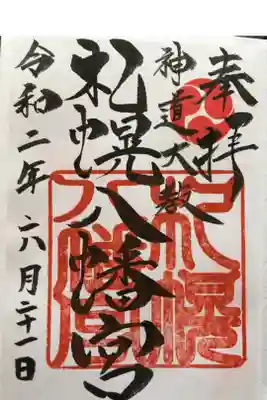 奉拝
神道大教
札幌八幡宮
令和二年六月二十一日
札幌八幡宮